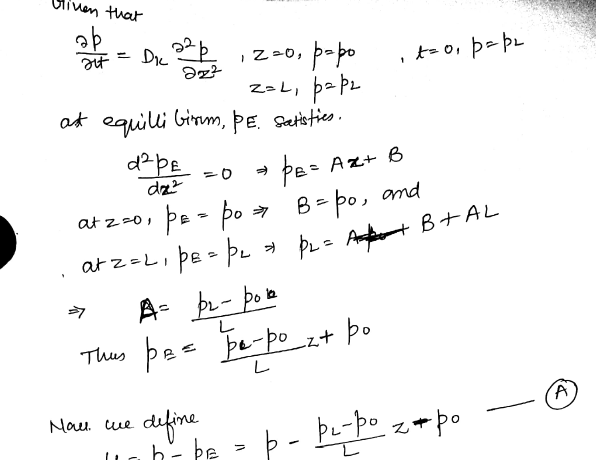 Given that
∂p/∂t = D_K ∂²p/∂z² , z=0, p=p₀ , t=0, p=p_L
z=L, p=p_L
at equilli birm, p_E. satisties.
d²p_E/dz² = 0 ⇒ p_E = Az + B
at z=0, p_E = p₀ ⇒ B = p₀, and
at z=L, p_E = p_L ⇒ p_L = B + AL
⇒ A = (p_L - p₀)/L
Thus p_E = (p_L-p₀)/L z + p₀
Now we define
u = p - p_E = p - (p_L-p₀)/L z + p₀ — (A)